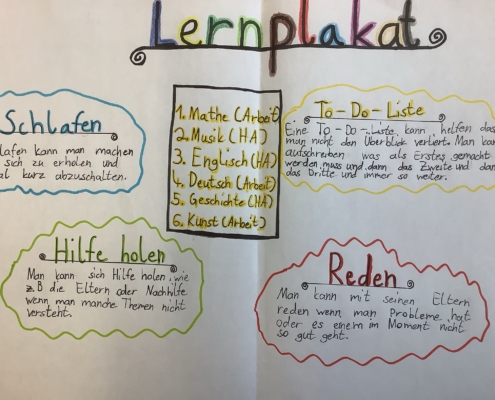 Lernplakat
Schlafen
lafen kann man machen
sich zu erholen und
al kurz abzuschalten.
1. Mathe (Arbeit)
2. Musik (HA)
3. Englisch (HA)
4. Deutsch (Arbeit)
5. Geschichte (HA)
6. Kunst (Arbeit)
To-Do-Liste
Eine To-Do-Liste kann helfen das
man nicht den Überblick verliert. Man kan
aufschreiben was als Erstes gemacht
werden muss und dann das Zweite und dann
das Dritte und immer so weiter.
Hilfe holen
Man kann sich Hilfe holen, wie
z.B die Eltern oder Nachhilfe
wenn man manche Themen nicht
versteht.
Reden
Man kann mit seinen Eltern
reden wenn man Probleme hat
oder es einem im Moment nicht
so gut geht.